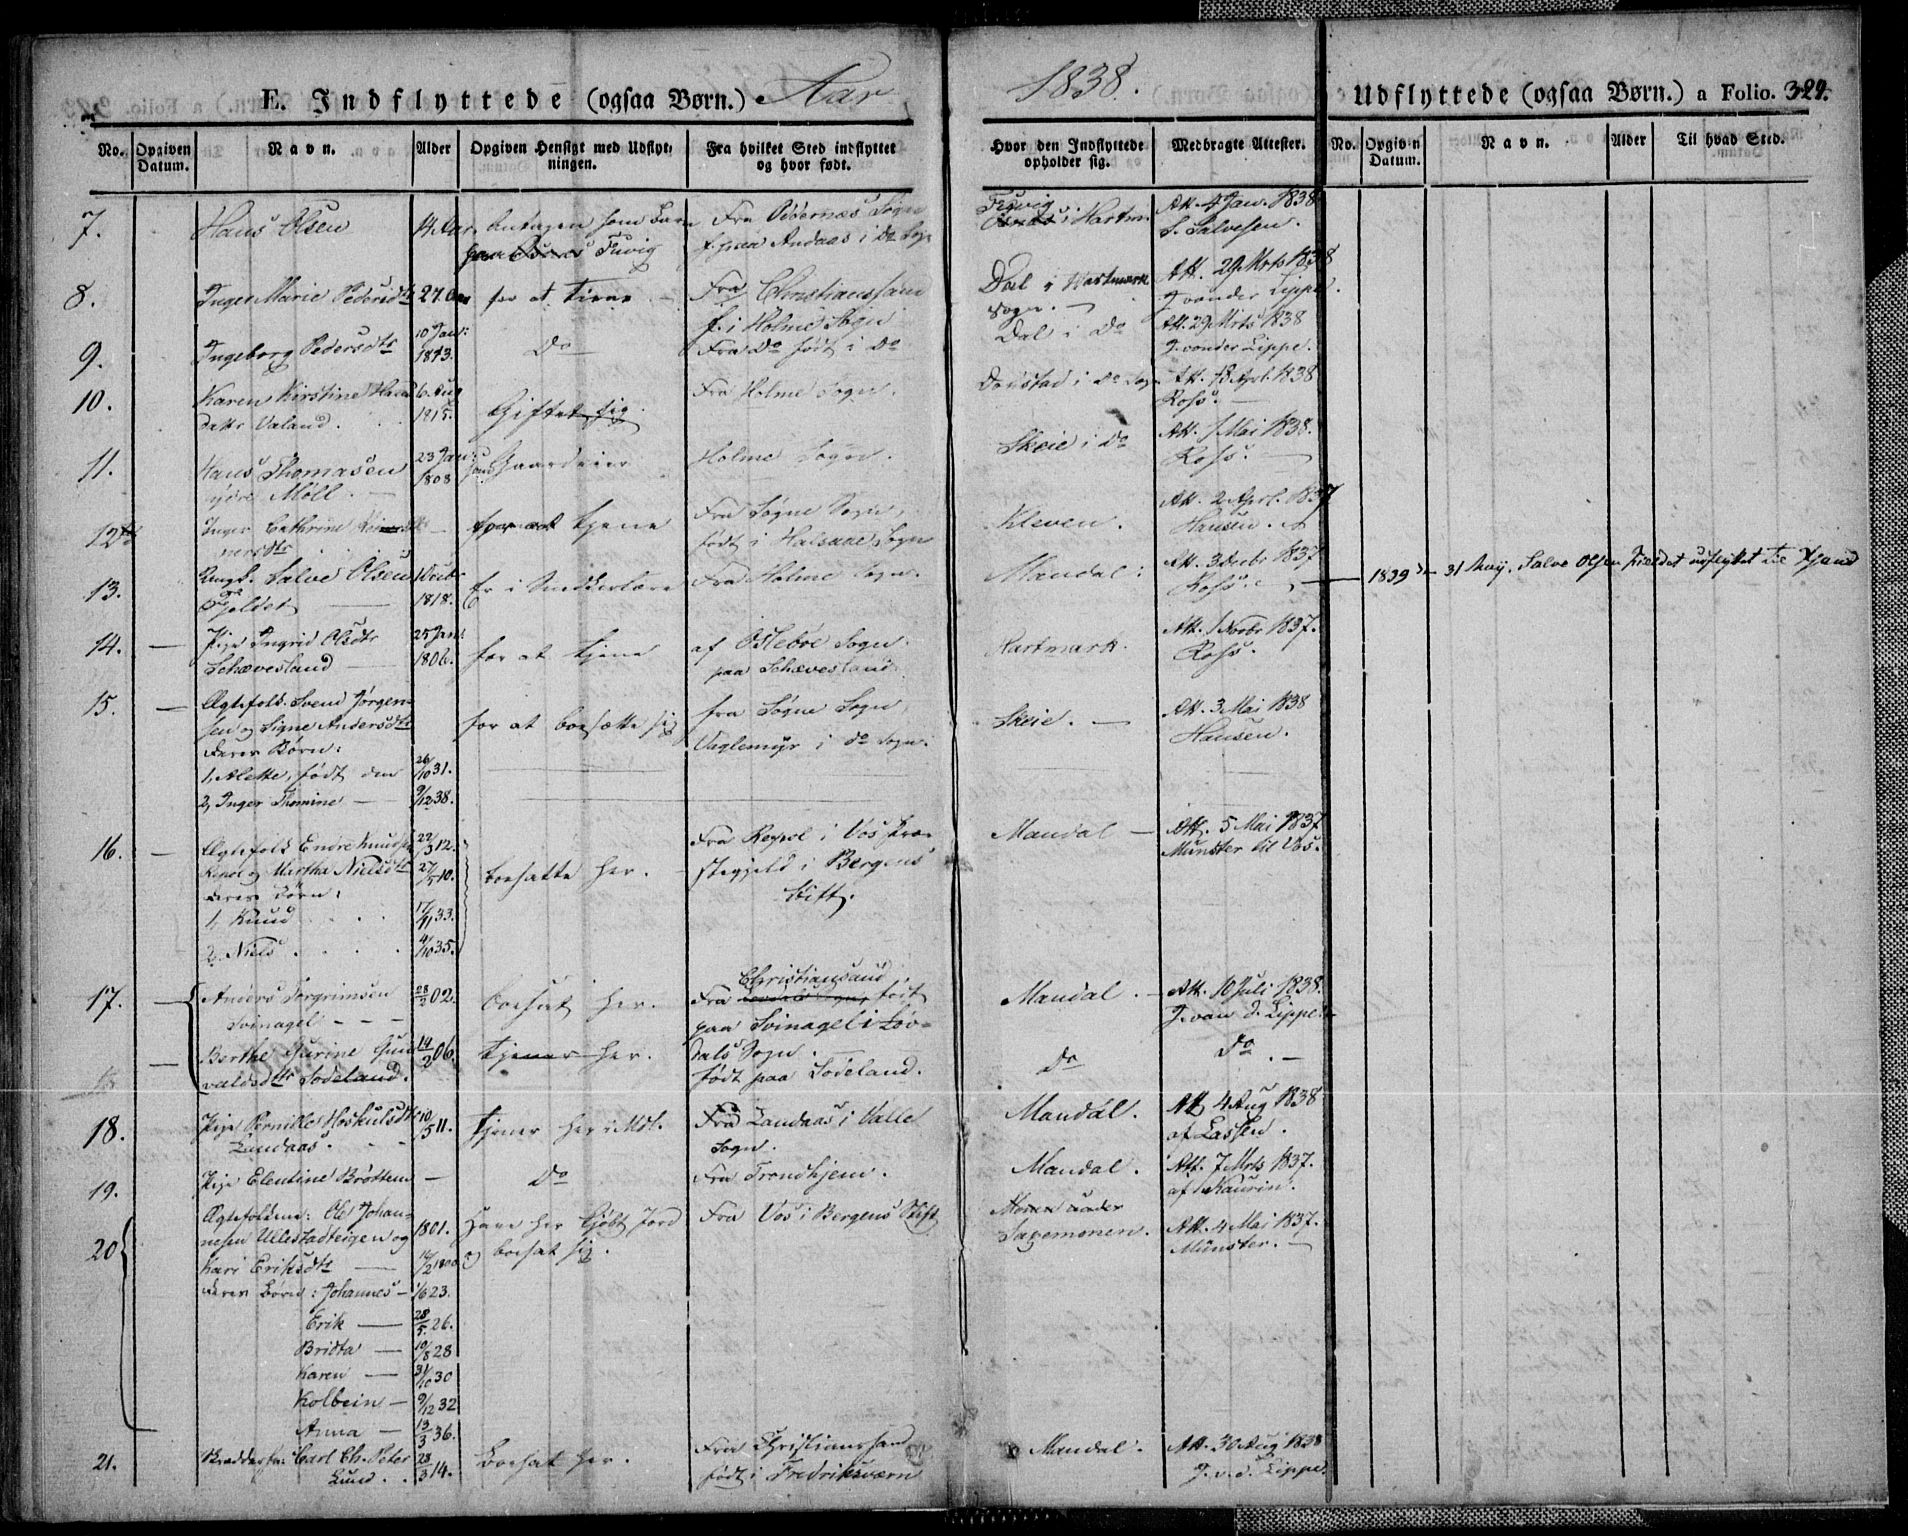 E. Indflyttede (ogsaa Børn.) Aar 1838. Udflyttede (ogsaa Børn.) a Folio. 324.
No. Opgiven Datum. Navn. Alder Opgiven Hensigt med Udflytningen. Fra hvilket Sted indflyttet og hvor født. Hvor den Indflyttede opholder sig. Medbragte Attester. No. Opgiven Datum. Navn. Alder Til hvad Sted.
7. Hans Olsen 14 Aar Antagen som Fra Oddernæs Sogn Att. 4 Jan. 1838
Tuvig S. Salvesen.
8. Inger Marie Pedersdtr 27 Aar for at tiene Fra Christianssand Dal i Hartmark Att. 29 Mrts 1838
f. i Holme Sogn Sogn. J. von der Lippe.
9. Ingeborg Pedersdtr 10 Janr: 1813. Do Fra Do født i Do Dal i Do Att. 29 Mrts 1838
J. von der Lippe.
10. Karen Kirstine 6. Aug 1815. Giftet sig. Fra Holme Sogn. i Do Sogn Att. 18 Apl. 1838
datter Valand. Ross.
11. Hans Thomasen 23 Jan: 1808 Gaardeier Holme Sogn. Skeie i Do Att. 1 Mai 1838.
Møll. Ross.
12. Inger Cathrine for at tjene Fra Søgne Sogn, Kleven. Att. 2 Aprl. 1837
nersdtr født i Halsaae Sogn Hansen.
13. Ungk. Salve Olsen 1818. Er i Snedkerlære Fra Holme Sogn. Mandal Att. 3 Decbr 1837 1839 31 May. Salve Olsen Fieldet udflyttet til
Fjeldet Ross.
14. Pige Ingrid Olsdtr 25 Jan: 1806. for at tjene af Oslebøe Sogn. Hartmark. Att. 1 Novbr 1837.
Schævesland paa Schævesland. Ross.
15. Ægtefolk: Svend Jørgen- for at bosætte sig fra Søgne Sogn, Skeie. Att. 3 Mai 1838
sen og Signe Andersdtr Vaglemyr i do Sogn. Hansen.
deres Børn:
1, Alette, født den 26/10 31.
2, Inger Thomine 9/12 38.
16. Ægtefolk Endre Knudsen 22/3 12. bosatte her. Fra Reqvol i Vos Præ- Mandal Att. 5 Mai 1837
og Martha Nielsdtr 27/5 10. stegjeld i Bergens Münster til Vos.
deres Børn: Stift.
1, Knud 17/11 33.
2, Niels 4/10 35.
17. Anders Torgrimsen 28/2 02. bosat her. Fra Christiansand født Mandal. Att. 10 Juli 1838.
Svinagel paa Svinagel i Løv- J. van d. Lippe.
Berthe Gurine Gun 14/2 06. tjener her. dals Sogn. Do Do
valdsdtr Lodeland. født paa Lodeland.
18. Pige Pernille Hoskulsdtr 10/5 11. Tjener her i Mdl. Fra Landaas i Valle Mandal. Att 4 Aug 1838
Landaas. Sogn. af Lassen.
19. Pige Elentine Brøttem Do Fra Trondhjem. Mandal. Att. 7 Mrts 1837.
af Kaurin.
20 Ægtefolkene: Ole Johan- 1801. Have her kjöbt Jord Fra Vos i Bergens Stift under Att. 4 Mai 1837.
nesen Ullestadteigen og og bosat sig. Sagemonen. Münster.
Kari Eriksdtr 16/2 1800
deres Børn: Johannes 1/6 23.
Erik 28/5. 26.
Britta 10/8 28
Karen 31/10 30
Kolbein 9/12 32
Anna 13/3 36.
21. Carl Ch. Peter 28/3 14. Bosat her. Fra Christianssand Mandal. Att. 30 Aug 1838
Lund født i Fredriksværn J. v. d. Lippe.